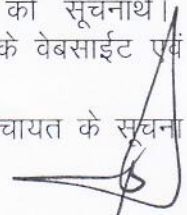 को सूचनार्थ।
के वेबसाईट एवं
चायत के सूचना